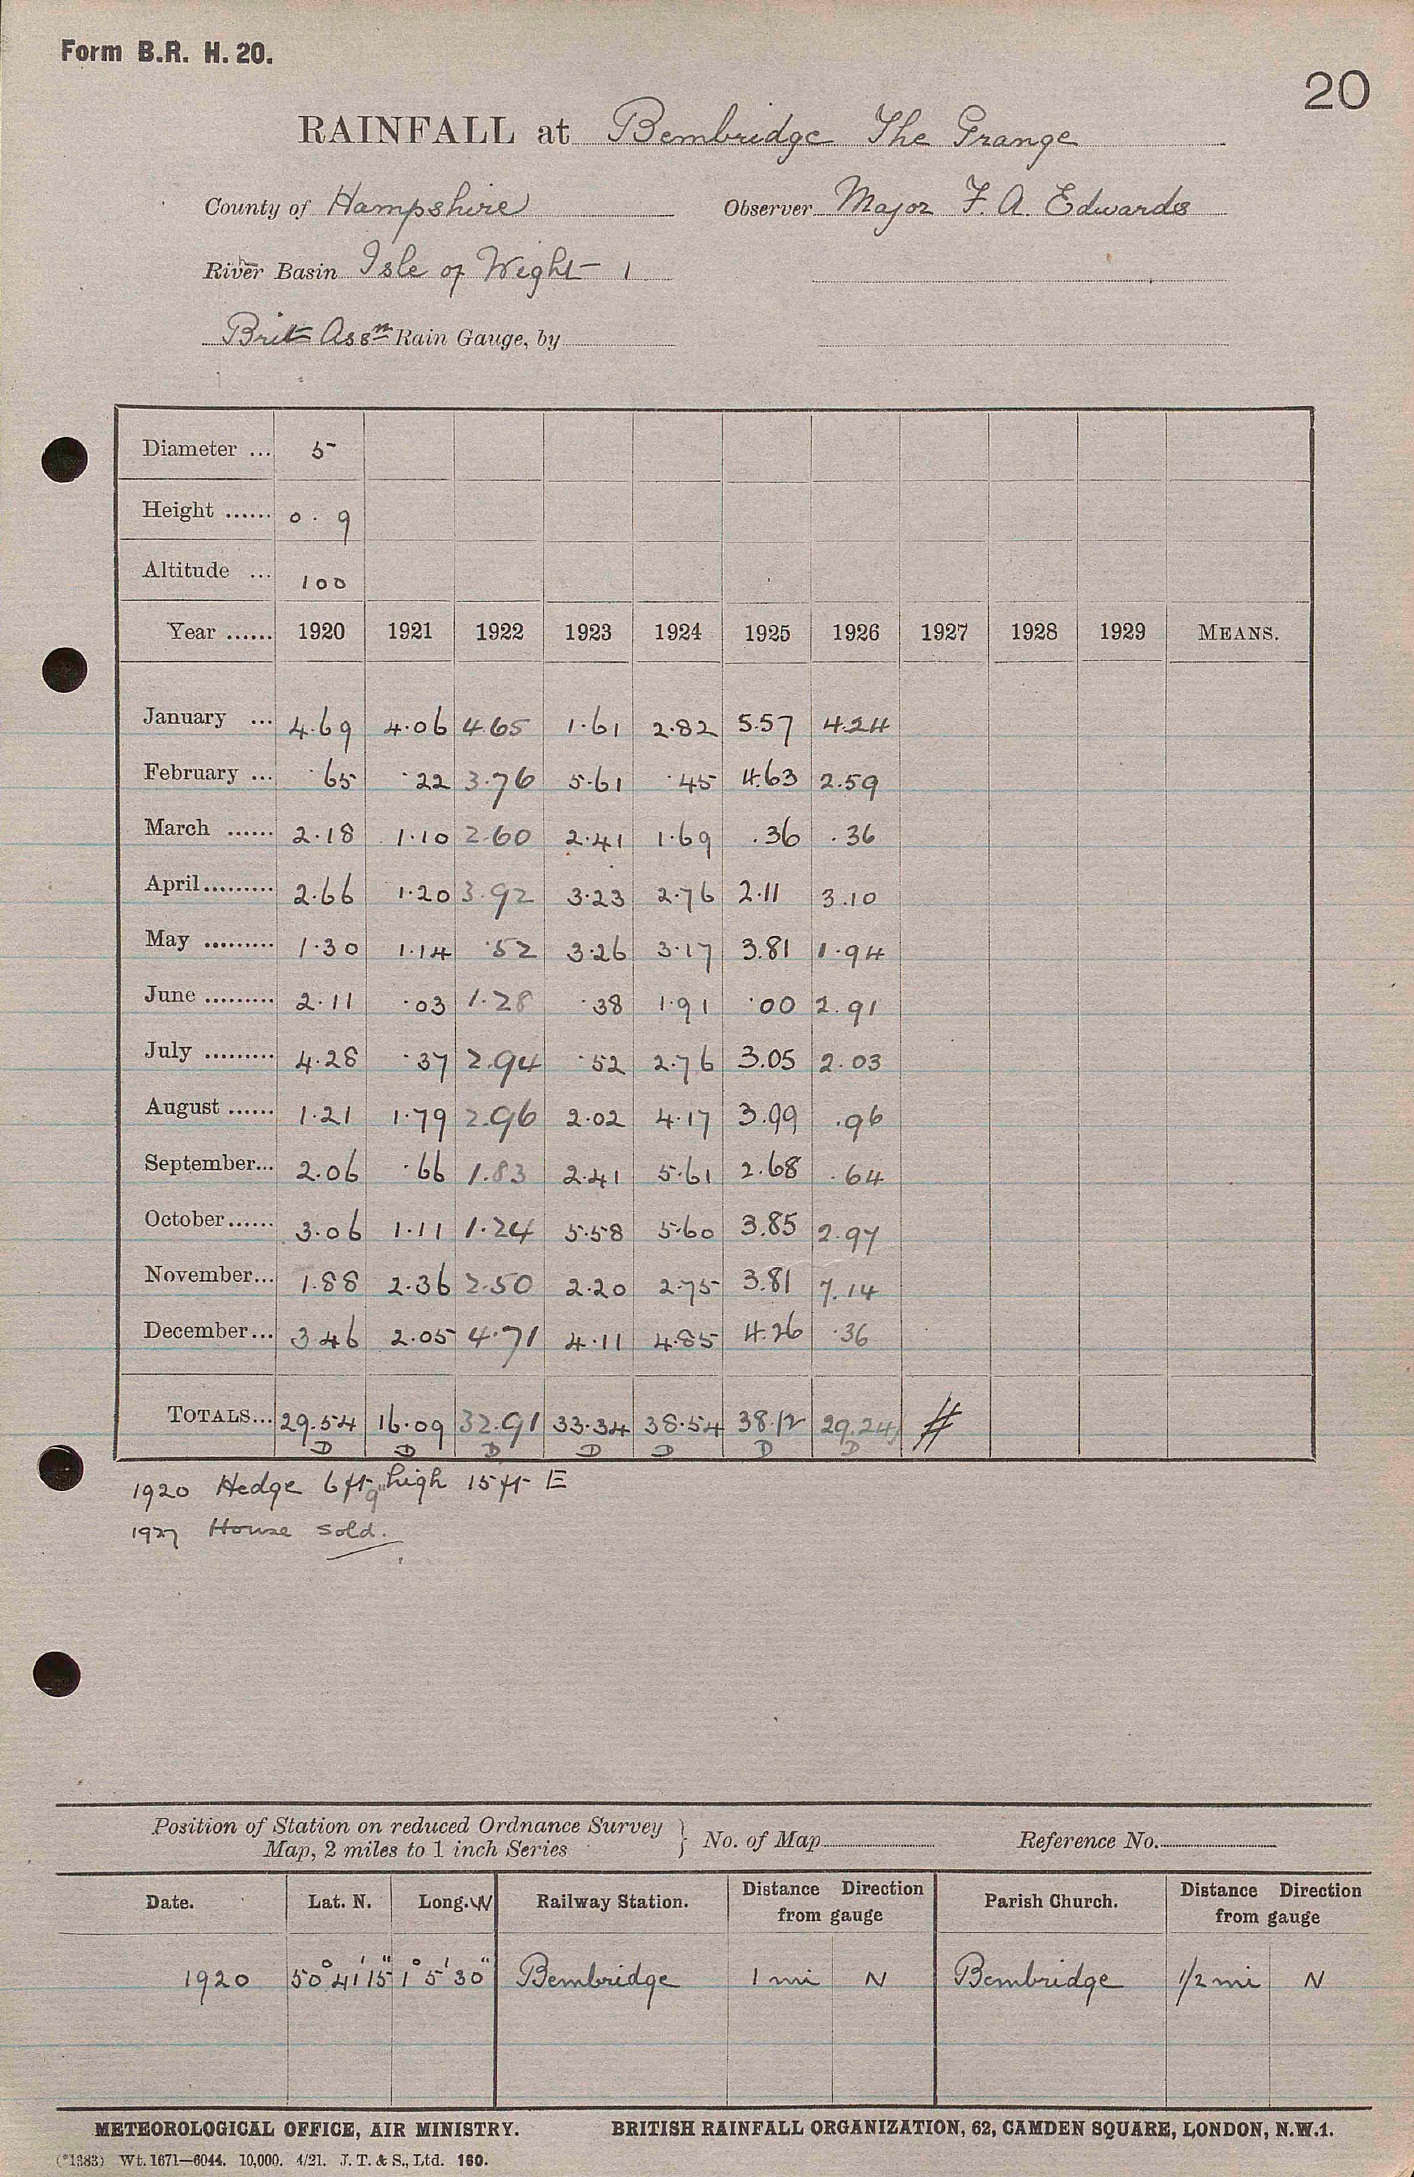 Form B.R. H. 20.
20
RAINFALL at Bembridge The Grange
County of Hampshire Observer Major F. A. Edwards
River Basin Isle of Wight 1
Brit Assn Rain Gauge, by
Diameter ... 5
Height ...... 0 . 9
Altitude ... 100
Year ...... 1920 1921 1922 1923 1924 1925 1926 1927 1928 1929 MEANS.
January ... 4.69 4.06 4.65 1.61 2.82 5.57 4.24
February ... .65 .22 3.76 5.61 .45 4.63 2.59
March ...... 2.18 1.10 2.60 2.41 1.69 .36 .36
April......... 2.66 1.20 3.92 3.23 2.76 2.11 3.10
May ......... 1.30 1.14 .52 3.26 3.17 3.81 1.94
June ......... 2.11 .03 1.28 .38 1.91 .00 2.91
July ......... 4.28 .37 2.94 .52 2.76 3.05 2.03
August ...... 1.21 1.79 2.96 2.02 4.17 3.99 .96
September... 2.06 .66 1.83 2.41 5.61 2.68 .64
October...... 3.06 1.11 1.24 5.58 5.60 3.85 2.97
November... 1.88 2.36 2.50 2.20 2.75 3.81 7.14
December... 3.46 2.05 4.71 4.11 4.85 4.26 .36
TOTALS... 29.54 16.09 32.91 33.34 38.54 38.12 29.24
D D D D D D D
1920 Hedge 6 ft 9" high 15 ft E
1927 House sold.
Position of Station on reduced Ordnance Survey
Map, 2 miles to 1 inch Series
No. of Map Reference No.
Date. Lat. N. Long. W Railway Station. Distance Direction from gauge Parish Church. Distance Direction from gauge
1920 50° 41' 15" 1° 5' 30" Bembridge 1 mi N Bembridge 1/2 mi N
METEOROLOGICAL OFFICE, AIR MINISTRY. BRITISH RAINFALL ORGANIZATION, 62, CAMDEN SQUARE, LONDON, N.W.1.
(*1383) Wt. 1671—6044. 10,000. 4/21. J. T. & S., Ltd. 160.